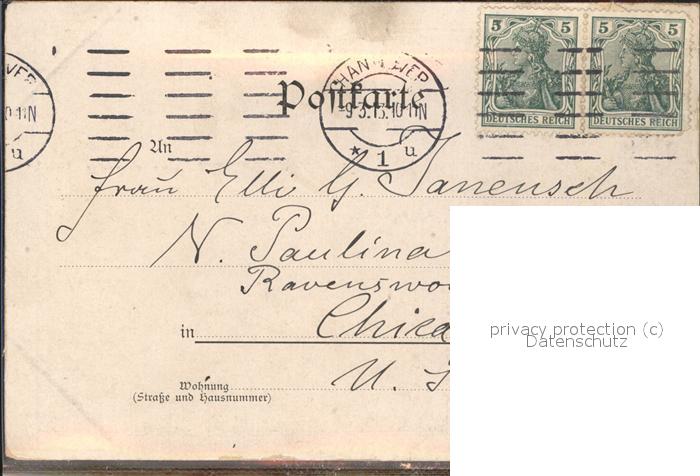 5 5 5 5
DEUTSCHES REICH DEUTSCHES REICH
HANNOVER
Postkarte
-9.3.13.10-11N
* 1 u
An
Frau Elli G. Janensch
N. Paulina
Ravenswo
in Chica
U. S
Wohnung
(Straße und Hausnummer)
privacy protection (c)
Datenschutz